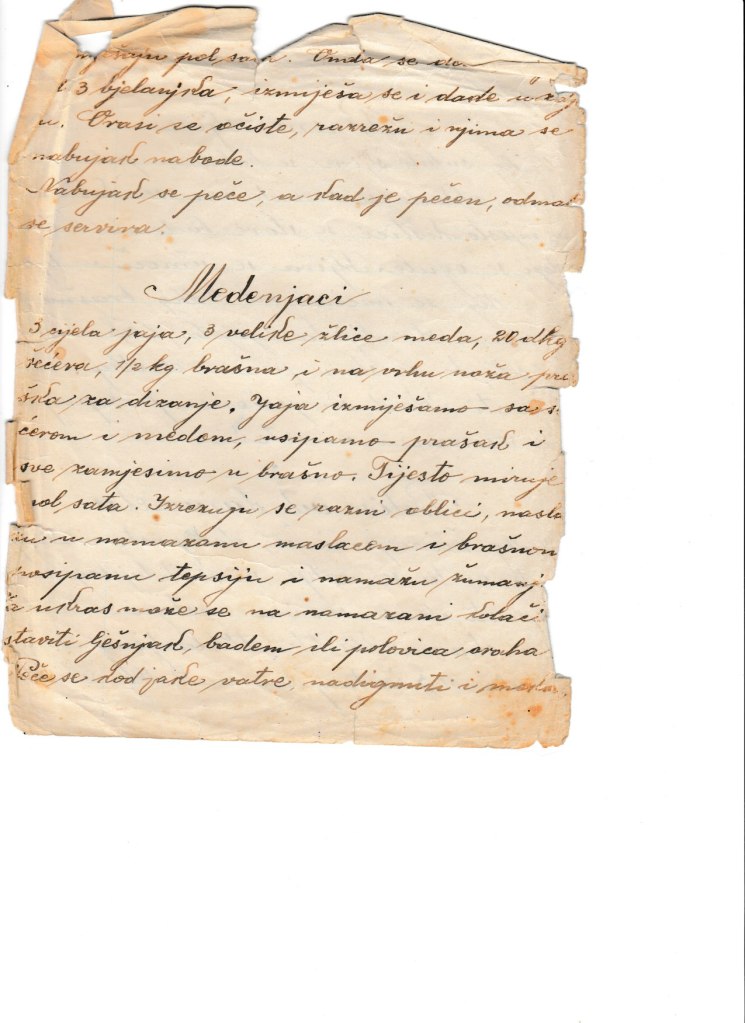 pol sata. Onda se
3 bjelanjka, izmiješa se i dade u
u. Orasi se očiste, razrežu i njima se
nabujak nabode.
Nabujak se peče, a kad je pečen, odmah
se servira.
Medenjaci
3 cijela jaja, 3 velike žlice meda, 20 dkg
šećera, 1/2 kg. brašna, i na vrhu noža pra
ška za dizanje. Jaja izmiješamo sa š
ćerom i medom, usipamo prašak i
sve zamjesimo u brašno. Tijesto miruje
pol sata. Izrezuju se razni oblici, nasla
žu u namazanu maslacem i brašnom
posipanu tepsiju i namažu žumanj
Za ukras može se na namazani kolači
staviti lješnjak, badem ili polovica oraha
Peče se kod jake vatre, nadignuti i